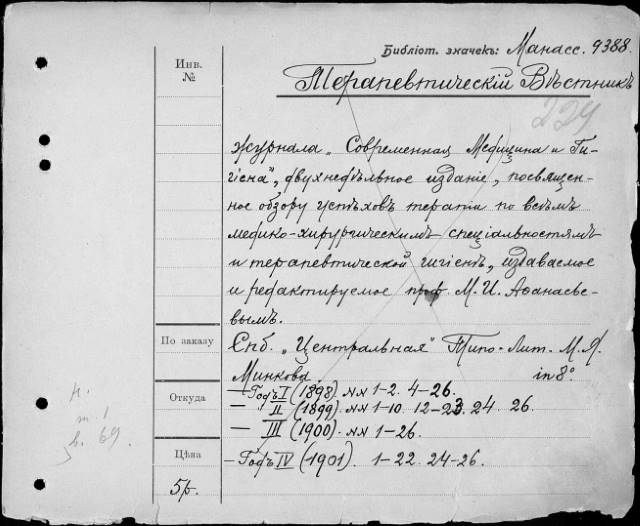 Библіот. значекъ: Манасс. 9388.
Инв.
№
Терапевтическій Вѣстникъ
229
журнала „Современная Медицина и Ги-
гіена", двухнедѣльное изданіе, посвящен-
ное обзору успѣховъ терапіи по всѣмъ
медико-хирургическимъ спеціальностямъ
и терапевтической гигіенѣ, издаваемое
и редактируемое проф М. И. Аѳанасье-
вымъ.
По заказу
Спб. „Центральная" Типо-Лит. М. Я.
Минкова in 8°.
Откуда
— Годъ I (1898) №№ 1-2. 4-26.
— II (1899) №№ 1-10. 12-23. 24. 26.
— III (1900) №№ 1-26.
н.
т. 1
в. 69.
Цѣна
— Годъ IV (1901). 1-22. 24-26.
5р.